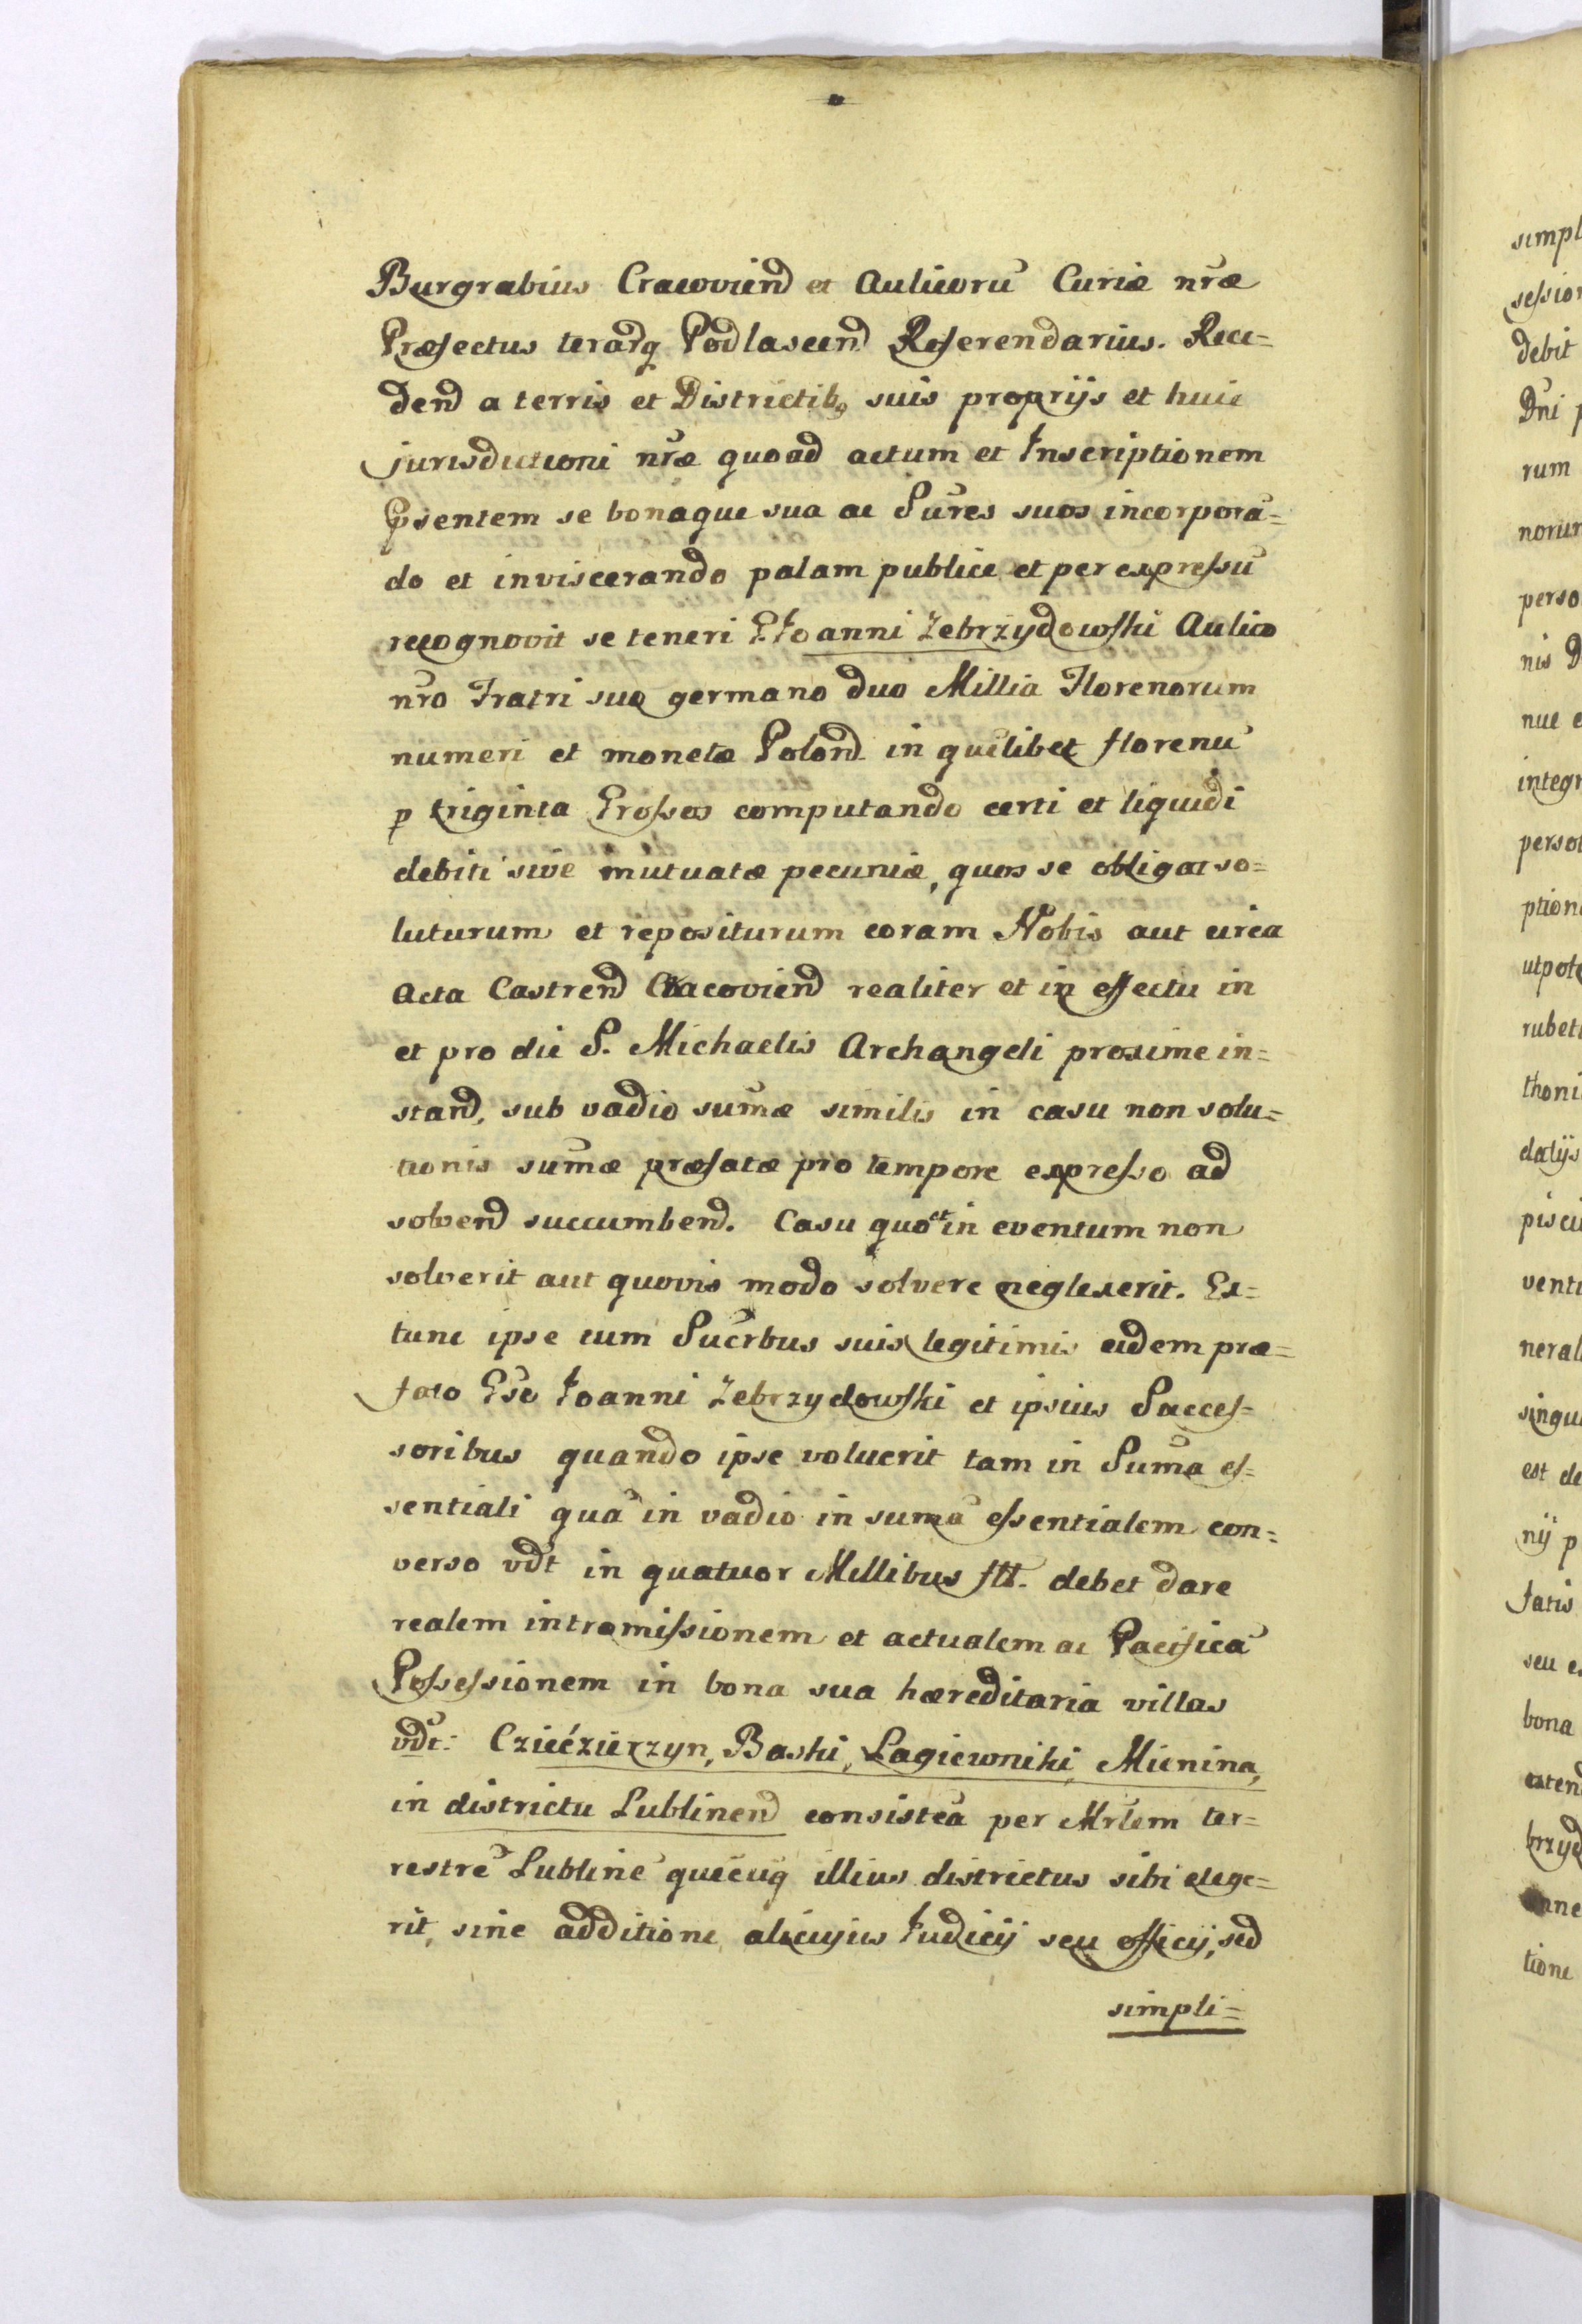 Burgrabius Cracovien et Aulicorū Curiæ nr̃æ
Præfectus terarq Podlascen Referendarius. Rece=
den a terris et Districtib9 suis proprijs et huic
jurisdictioni nr̃æ quoad actum et Inscriptionem
p̃sentem se bonaque sua ac Sũres suos incorporā=
do et inviscerando palam publice et per expressũ
recognovit se teneri G. Joanni Zebrzydowski Aulico
nr̃o Fratri suo germano duo Millia Florenorum
numeri et monetæ Polon in quēlibet florenū
p triginta Grossos computando certi et liquidi
debiti sive mutuatæ pecuniæ, quos se obligat so=
luturum et repositurum coram Nobis aut circa
Acta Castren Cracovien realiter et in effectu in
et pro die S. Michaelis Archangeli proxime in=
stan, sub vadio sum̃æ similis in casu non solu=
tionis sum̃æ præfatæ pro tempore expresso ad
solven succumben. Casu quo et in eventum non
solverit aut quovis modo solvere neglexerit. Ex=
tunc ipse cum Sucr̃bus suis legitimis eidem præ=
fato Gso Joanni Zebrzydowski et ipsius Succes=
soribus quando ipse voluerit tam in Sum̃a es=
sentiali quā in vadio in sum̃ā essentialem con=
verso vdt in quatuor Millibus fll. debet dare
realem intromissionem et actualem ac Pacificā
Possessionem in bona sua hæreditaria villas
vdt: Cziećzierzyn, Baski, Lagiewniki, Mienina,
in districtu Lublinen consistēā per Mrlem ter=
restrē Lublinē quēcūq illius districtus sibi elege=
rit, sine additione alicujus Judicij seu officij, sed
simpli=
simpl
sessio
debit
Dñi p
rum
norun
perso
nis D
nue e
integr
person
ption
utpote
rubet
thoni
datijs
piscu
vent
neral
singu
est de
nij p
fatis
seu e
bona
exten
brzyd
nne
tione